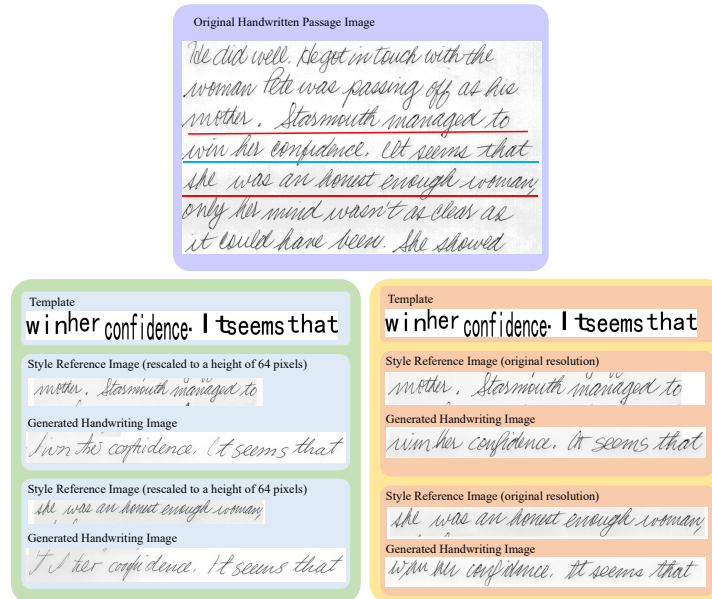 Original Handwritten Passage Image
We did well. He got in touch with the
woman Pete was passing off as his
mother. Starmouth managed to
win her confidence. It seems that
she was an honest enough woman,
only her mind wasn't as clear as
it could have been. She showed
Template
winher confidence. Itseems that
Style Reference Image (rescaled to a height of 64 pixels)
mother. Starmouth managed to
Generated Handwriting Image
confidence. It seems that
Style Reference Image (rescaled to a height of 64 pixels)
she was an honest enough woman
Generated Handwriting Image
her confidence. It seems that
Template
winher confidence. Itseems that
Style Reference Image (original resolution)
mother. Starmouth managed to
Generated Handwriting Image
her confidence. It seems that
Style Reference Image (original resolution)
she was an honest enough woman,
Generated Handwriting Image
her confidence. It seems that